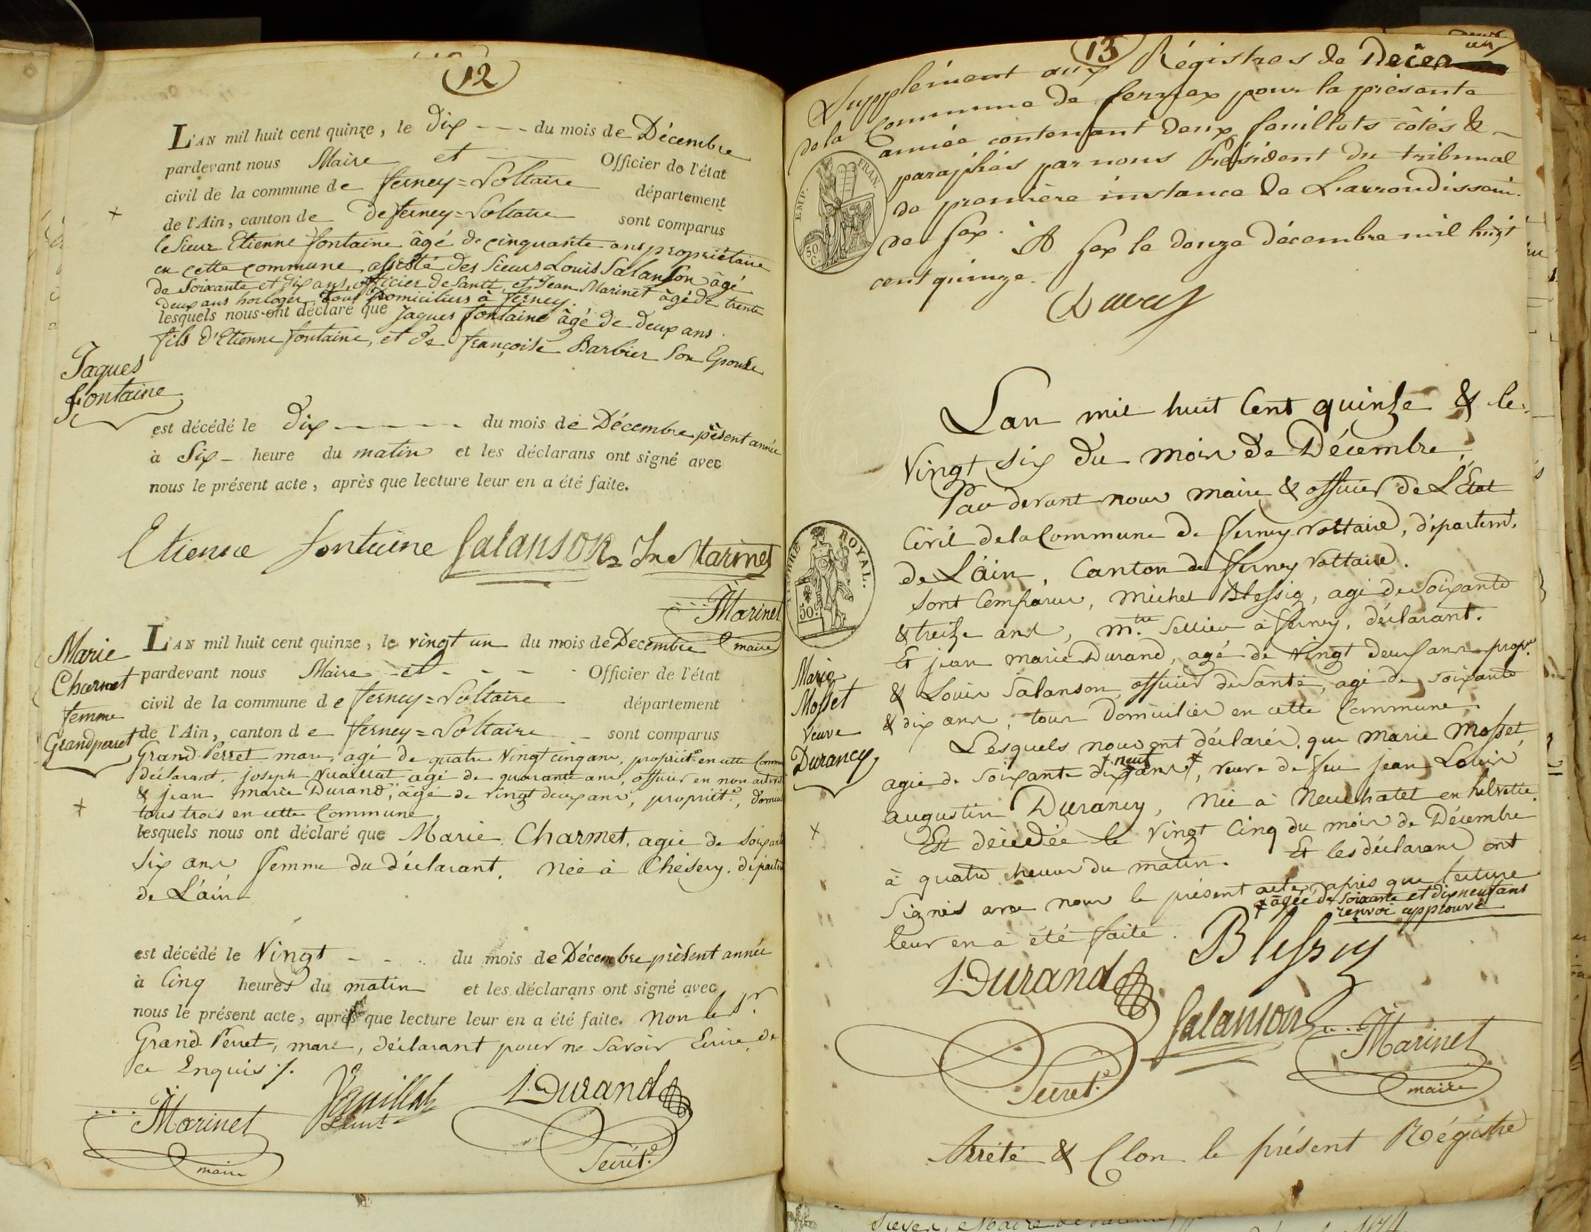 12
L'AN mil huit cent quinze, le dix - - - du mois de Décembre
pardevant nous Maire et - - - Officier de l'état
civil de la commune de ferney=Voltaire département
de l'Ain, canton de De ferney=Voltaire sont comparus
le Sieur Etienne fontaine âgé de cinquante ans propriétaire
en cette commune, assisté des Sieurs Louis Salanson âgé
de Soixante et dix ans officier de Santé, et Jean Marinet âgé de trente
deux ans horloger, tous Domiciliers à ferney.
lesquels nous ont déclaré que Jaques fontaine âgé de deux ans.
fils d'Etienne fontaine, et de françoise Barbier Son Epouse
Jaques
fontaine
est décédé le dix - - - - - du mois de Décembre présent année
à Six - heure du matin et les déclarans ont signé avec
nous le présent acte, après que lecture leur en a été faite.
Etienne fontaine Salanson Jn Marinet
Marinet
maire
Marie
Charmet
femme
Grandperret
L'AN mil huit cent quinze, le vingt un du mois de Décembre
pardevant nous Maire - et - - - - Officier de l'état
civil de la commune de ferney=Voltaire département
de l'Ain, canton de ferney=Voltaire - sont comparus
Grand Perret marc, agé de quatre Vingt cinq ans, propriétre en cette Comm
déclarant, joseph Vuaillat agé de quarante ans, officier en non activité
& jean marie Durand, agé de vingt deux ans, propriétre, domici
tous trois en cette Commune,
lesquels nous ont déclaré que Marie Charmet, agée de Soixante
Six ans femme du déclarant, née à Chésery, départ
de L'ain
est décédé le Vingt - - .. du mois de Décembre présent année
à Cinq heures du matin et les déclarans ont signé avec
nous le présent acte, après que lecture leur en a été faite. Non le Sr.
Grand Perret, marc, déclarant pour ne Savoir Ecrire, de
ce Enquis ./.
Marinet
maire
Vuaillat
J. Durand
Secrét.e
13
Supplément aux Régistres de Décès
de la Commune de fernex pour la présente
année contenant Deux feuillets côtés &
paraphés par nous Président du tribunal
de première instance de L'arrondissem.
de Gex. A Gex le douze décembre mil huit
cent quinze.
EMP. FRAN.
50 C.
Lan mil huit Cent quinze & le
Vingt six du mois de Décembre.
Par devant nous maire & officier de L'Etat
Civil de la Commune de fferney voltaire, départemt.
de L'ain, Canton de fferney Voltaire.
Sont Comparus, Michel Blessig, agé de Soixante
& treize ans, m.tre Sellier à fferney, déclarant.
Et jean marie Durand, agé de vingt deux ans propr.
& Louis Salanson officier de Santé, agé de Soixante
& dix ans, tous Domiciliés en cette Commune.
TIMBRE ROYAL.
50 C.
Marie
Mosset
Veuve
Durancy
Lesquels nous ont déclarés, que Marie Mosset
neuf
agée de Soixante dix ans, veuve de feu jean Louis
augustin Durancy, Née à Neuchatel en helvétie.
Est décédée le Vingt Cinq du mois de Décembre
à quatre heures du matin. Et les déclarans ont
Signés avec nous le présent acte, après que lecture
âgée de Soixante et dix neuf ans
renvoi approuvé
leur en a été faite.
Blessig
J. Durand
Salanson
Secrét.e
Marinet
maire
Arrêté & Clos le présent Régistre